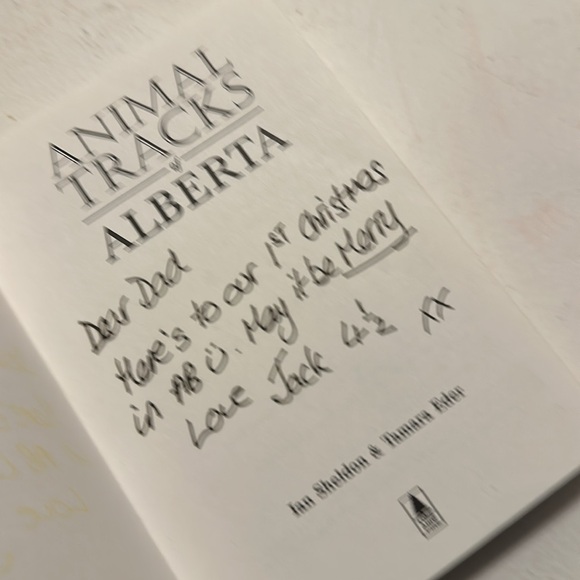 ANIMAL
TRACKS
ALBERTA
Dear Dad
Here's to our 1ST Christmas
in AB ☺. May it be Merry
Love Jack 4½ xx
Ian Sheldon & Tamara Eder